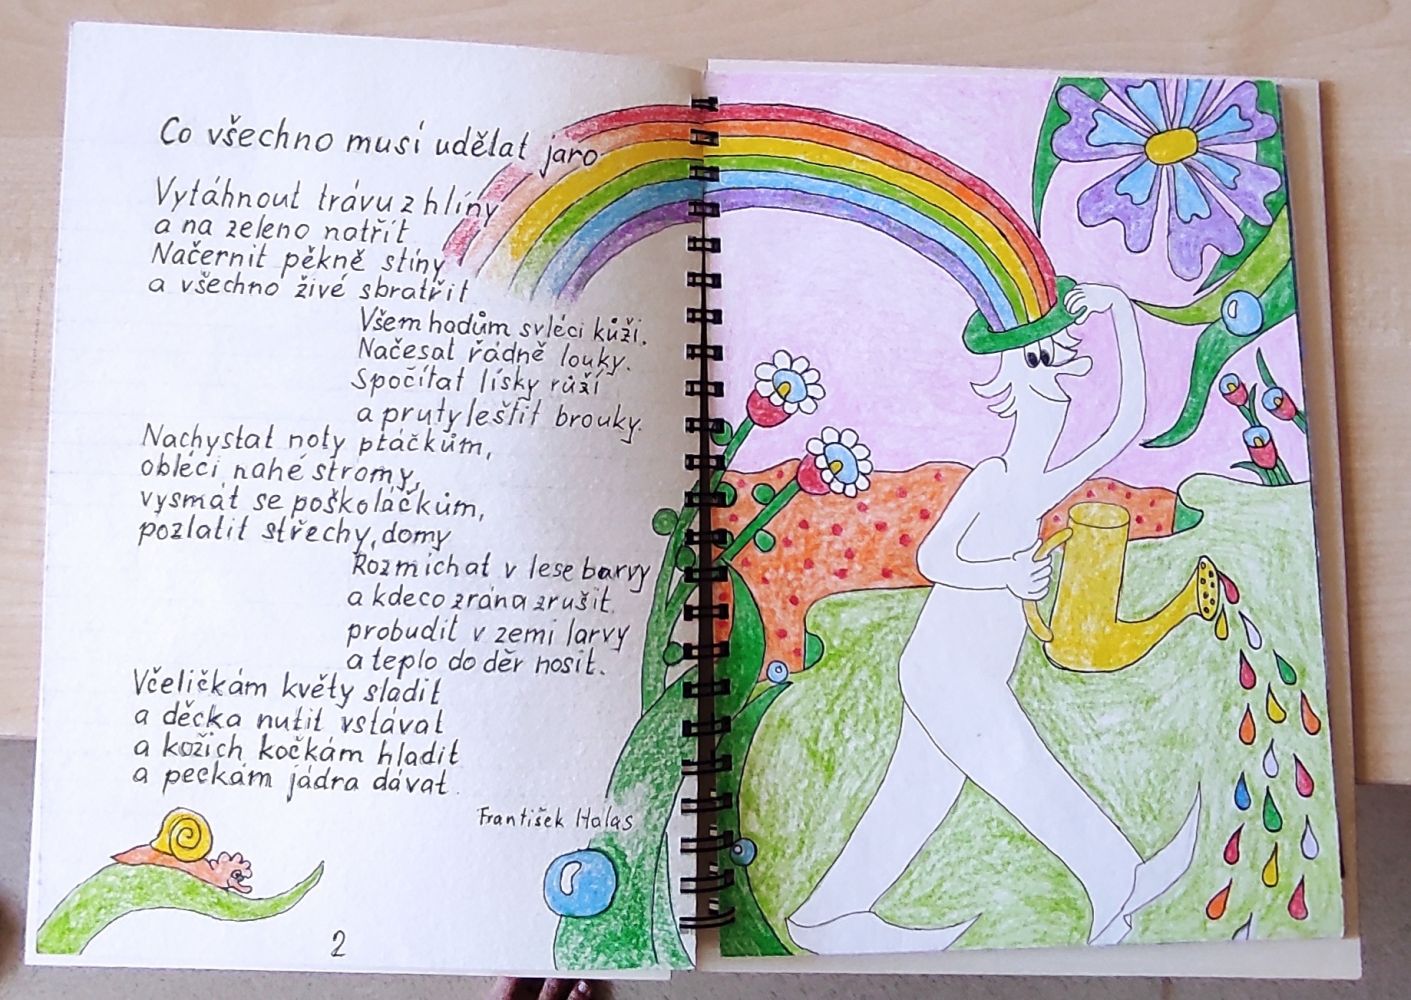 Co všechno musí udělat jaro
Vytáhnout trávu z hlíny
a na zeleno natřít
Načernit pěkně stíny
a všechno živé sbratřit
Všem hadům svléci kůži.
Načesat řádně louky.
Spočítat lísky růží
a pruty leštit brouky.
Nachystat noty ptáčkům,
obléci nahé stromy,
vysmát se poškoláčkům,
pozlatit střechy, domy
Rozmíchat v lese barvy
a kdeco zrána zrušit.
probudit v zemi larvy
a teplo do děr nosit.
Včeličkám květy sladit
a děcka nutit vstávat
a kožich kočkám hladit
a peckám jádra dávat.
František Halas
2